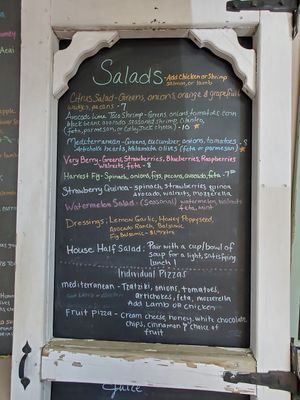 Salads - Add Chicken or Shrimp
salmon, or lamb
Citrus Salad - Greens, onions, orange & grapefruit
wedges, pecans - 7
Avocado Lime Taco Shrimp - Greens, onions, tomatoes, corn
black beans, avocado, seasoned shrimp, cilantro,
(feta, parmesan, or Colby Jack cheese) 10
Mediterranean - Greens, cucumber, onions, tomatoes,
Artichoke hearts, Kalamata olives (feta or parmesan)
Very Berry - Greens, Strawberries, Blueberries, Raspberries
walnuts, feta - 8
Harvest Fig - Spinach, onions, figs, pecans, avocado, feta - 7
Strawberry Quinoa - spinach, strawberries, quinoa
avocado, walnuts, mozzarella
Watermelon Salad - (Seasonal) watermelon, walnuts
feta, mint
Dressings: Lemon Garlic, Honey Poppyseed,
Avocado Ranch, Balsamic
Fig Balsamic
House Half Salad: Pair with a cup/bowl of
soup for a light, satisfying
lunch!
Individual Pizzas
mediterranean - Tzatziki, onions, tomatoes,
artichokes, feta, mozzarella
Add Lamb or Chicken
Fruit Pizza - Cream cheese, honey, white chocolate
chips, cinnamon & choice of
fruit
Juice